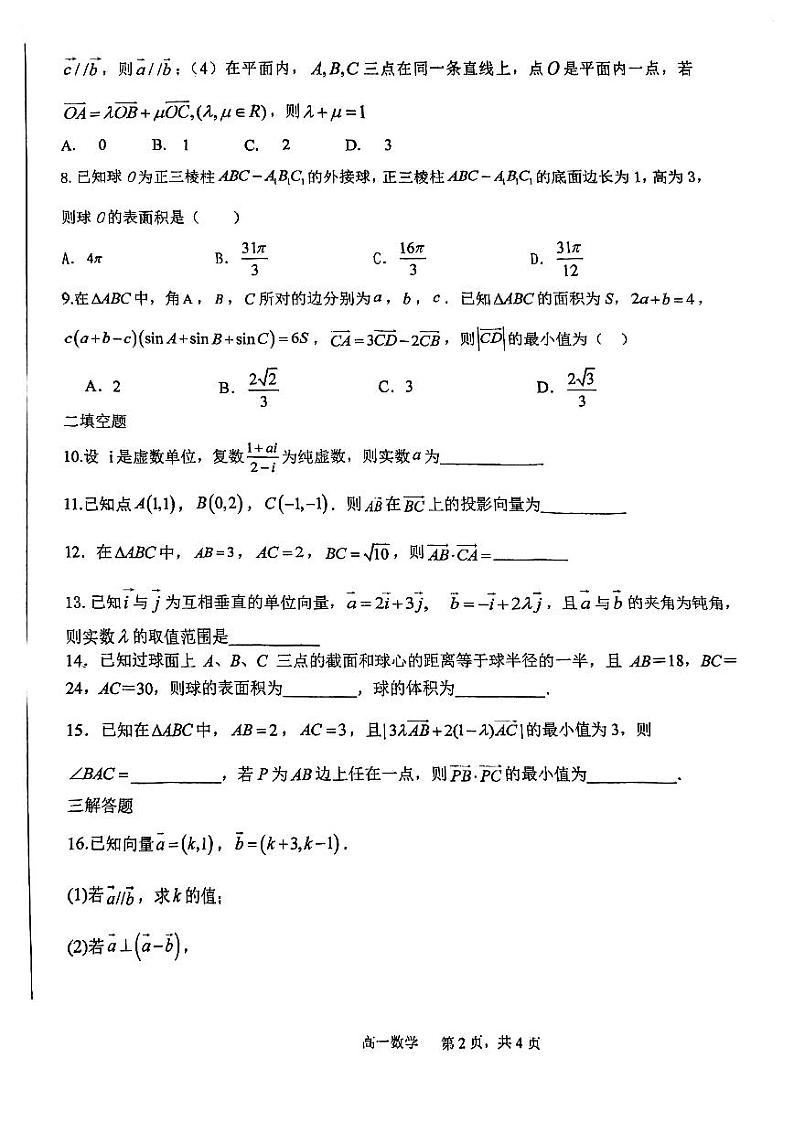 $\vec{c}//\vec{b}$，则$\vec{a}//\vec{b}$；（4）在平面内，$A,B,C$三点在同一条直线上，点$O$是平面内一点，若
$\overrightarrow{OA}=\lambda\overrightarrow{OB}+\mu\overrightarrow{OC},(\lambda,\mu\in R)$，则$\lambda+\mu=1$
A. 0 B. 1 C. 2 D. 3
8. 已知球O为正三棱柱$ABC-A_1B_1C_1$的外接球，正三棱柱$ABC-A_1B_1C_1$的底面边长为1，高为3，
则球O的表面积是（ ）
A. $4\pi$ B. $\frac{31\pi}{3}$ C. $\frac{16\pi}{3}$ D. $\frac{31\pi}{12}$
9.在$\triangle ABC$中，角A，B，C所对的边分别为$a$，$b$，$c$．已知$\triangle ABC$的面积为S，$2a+b=4$，
$c(a+b-c)(\sin A+\sin B+\sin C)=6S$，$\overrightarrow{CA}=3\overrightarrow{CD}-2\overrightarrow{CB}$，则$|\overrightarrow{CD}|$的最小值为（ ）
A．2 B．$\frac{2\sqrt{2}}{3}$ C．3 D．$\frac{2\sqrt{3}}{3}$
二填空题
10.设 i是虚数单位，复数$\frac{1+ai}{2-i}$为纯虚数，则实数$a$为____________
11.已知点$A(1,1)$，$B(0,2)$，$C(-1,-1)$．则$\overrightarrow{AB}$在$\overrightarrow{BC}$上的投影向量为__________
12．在$\triangle ABC$中，$AB=3$，$AC=2$，$BC=\sqrt{10}$，则$\overrightarrow{AB}\cdot\overrightarrow{CA}=$________
13. 已知$\vec{i}$与$\vec{j}$为互相垂直的单位向量，$\vec{a}=2\vec{i}+3\vec{j}$, $\vec{b}=-\vec{i}+2\lambda\vec{j}$，且$\vec{a}$与$\vec{b}$的夹角为钝角，
则实数$\lambda$的取值范围是__________
14．已知过球面上 A、B、C 三点的截面和球心的距离等于球半径的一半，且 AB＝18，BC＝
24，AC＝30，则球的表面积为________，球的体积为__________．
15．已知在$\triangle ABC$中，$AB=2$，$AC=3$，且$|3\lambda\overrightarrow{AB}+2(1-\lambda)\overrightarrow{AC}|$的最小值为3，则
$\angle BAC=$__________，若P为AB边上任在一点，则$\overrightarrow{PB}\cdot\overrightarrow{PC}$的最小值为__________．
三解答题
16.已知向量$\vec{a}=(k,1)$，$\vec{b}=(k+3,k-1)$．
(1)若$\vec{a}//\vec{b}$，求$k$的值；
(2)若$\vec{a}\perp(\vec{a}-\vec{b})$，
高一数学 第2页，共4页